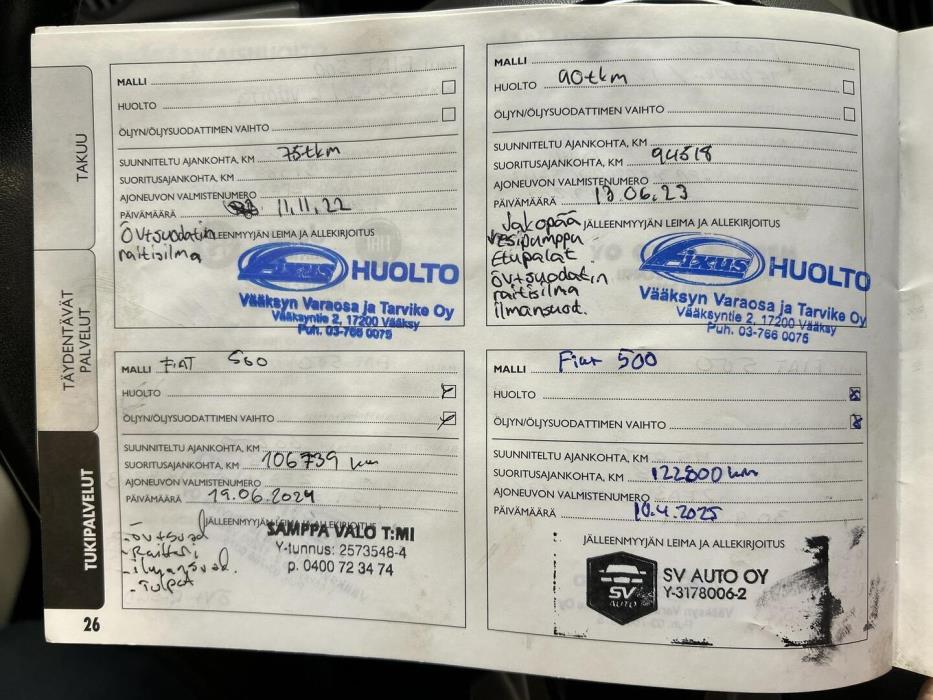 TAKUU
TÄYDENTÄVÄT
PALVELUT
TUKIPALVELUT
MALLI
HUOLTO
ÖLJYN/ÖLJYSUODATTIMEN VAIHTO
SUUNNITELTU AJANKOHTA, KM 75tkm
SUORITUSAJANKOHTA, KM
AJONEUVON VALMISTENUMERO
PÄIVÄMÄÄRÄ 11.11.22
JÄLLEENMYYJÄN LEIMA JA ALLEKIRJOITUS
Övtsuodatin
raitisilma
Fixus HUOLTO
Vääksyn Varaosa ja Tarvike Oy
Vääksyntie 2, 17200 Vääksy
Puh. 03-766 0075
MALLI
HUOLTO 90tkm
ÖLJYN/ÖLJYSUODATTIMEN VAIHTO
SUUNNITELTU AJANKOHTA, KM
SUORITUSAJANKOHTA, KM 94518
AJONEUVON VALMISTENUMERO
PÄIVÄMÄÄRÄ 13.06.23
JÄLLEENMYYJÄN LEIMA JA ALLEKIRJOITUS
Jakopää
vesipumppu
Etupalat
övtsuodatin
raitisilma
ilmansuod.
Fixus HUOLTO
Vääksyn Varaosa ja Tarvike Oy
Vääksyntie 2, 17200 Vääksy
Puh. 03-766 0075
MALLI FIAT 500
HUOLTO
ÖLJYN/ÖLJYSUODATTIMEN VAIHTO
SUUNNITELTU AJANKOHTA, KM
SUORITUSAJANKOHTA, KM 106739 km
AJONEUVON VALMISTENUMERO
PÄIVÄMÄÄRÄ 19.06.2024
JÄLLEENMYYJÄN LEIMA JA ALLEKIRJOITUS
- övtsuod
- Raitti.i
- ilmansuod.
- Tulpat
SAMPPA VALO T:MI
Y-tunnus: 2573548-4
p. 0400 72 34 74
MALLI Fiat 500
HUOLTO
ÖLJYN/ÖLJYSUODATTIMEN VAIHTO
SUUNNITELTU AJANKOHTA, KM
SUORITUSAJANKOHTA, KM 122800 km
AJONEUVON VALMISTENUMERO
PÄIVÄMÄÄRÄ 10.4.2025
JÄLLEENMYYJÄN LEIMA JA ALLEKIRJOITUS
SV
AUTO
SV AUTO OY
Y-3178006-2
26